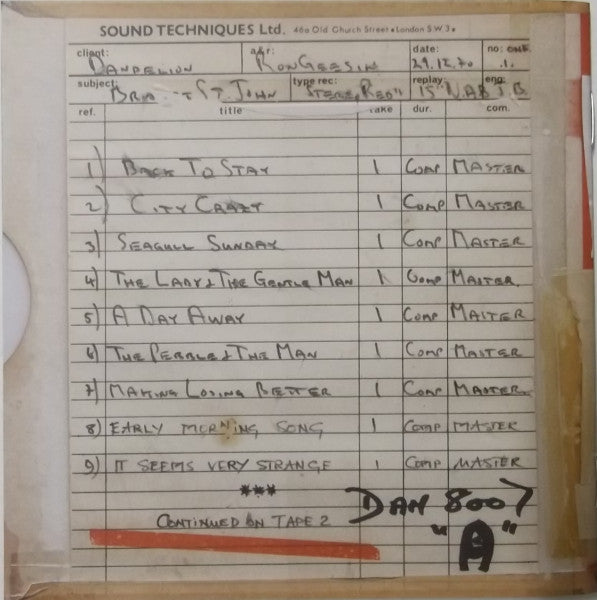 SOUND TECHNIQUES Ltd. 46a Old Church Street • London S.W.3.
client: DANDELION a&r: RON GEESIN date: 29.12.70 no: ONE .1.
subject: BRI T ST. JOHN type rec: STEREO RED" replay: 15" NAB eng: J.B
ref. title take dur. com.
1) BACK TO STAY 1 COMP MASTER
2) CITY CRAZY 1 COMP MASTER
3) SEAGULL SUNDAY 1 COMP MASTER
4) THE LADY & THE GENTLE MAN 1 COMP MASTER.
5) A DAY AWAY 1 COMP MASTER
6) THE PEBBLE & THE MAN 1 COMP MASTER
7) MAKING LOSING BETTER 1 COMP MASTER
8) EARLY MORNING SONG 1 COMP MASTER
9) IT SEEMS VERY STRANGE 1 COMP MASTER
***
CONTINUED ON TAPE 2
DAN 8007
"A"